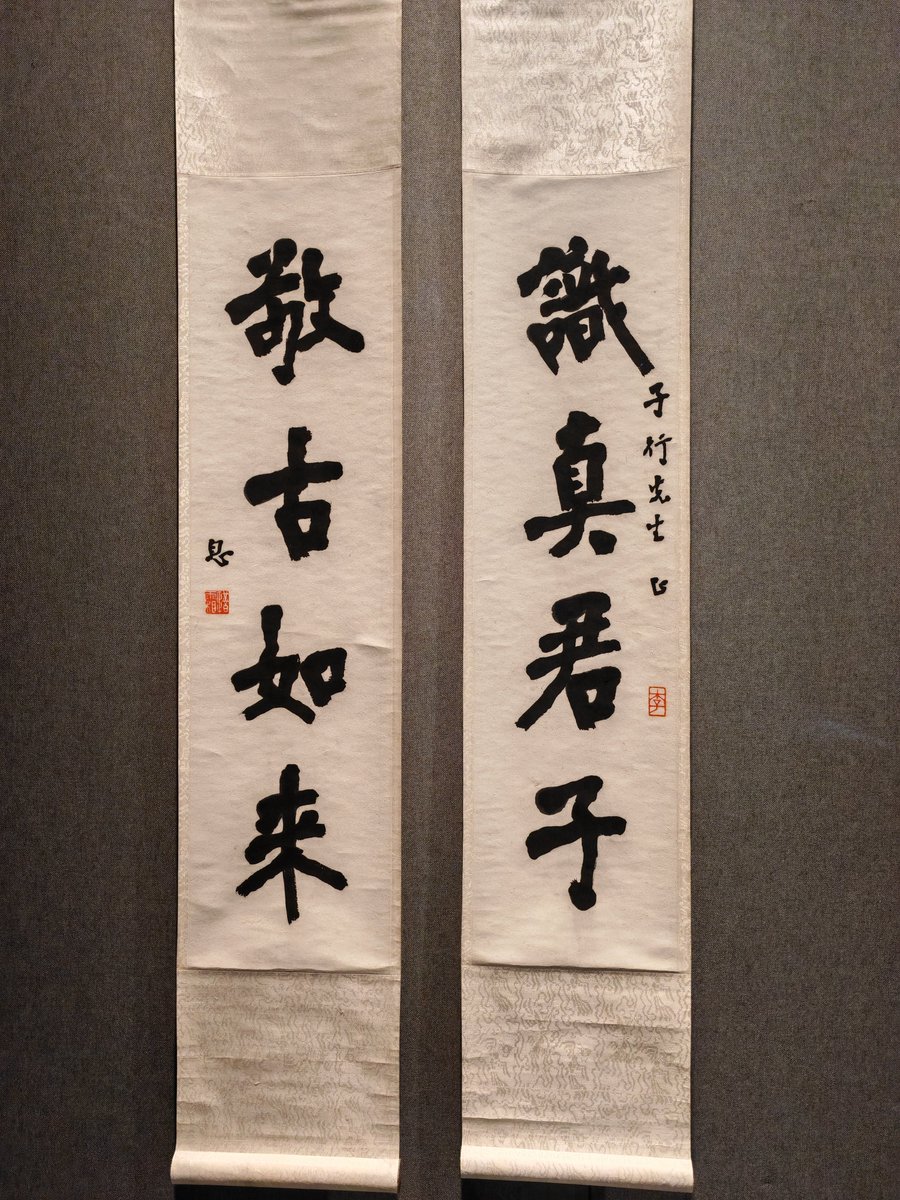 識真君子
子行先生 正
李
敬古如來
息